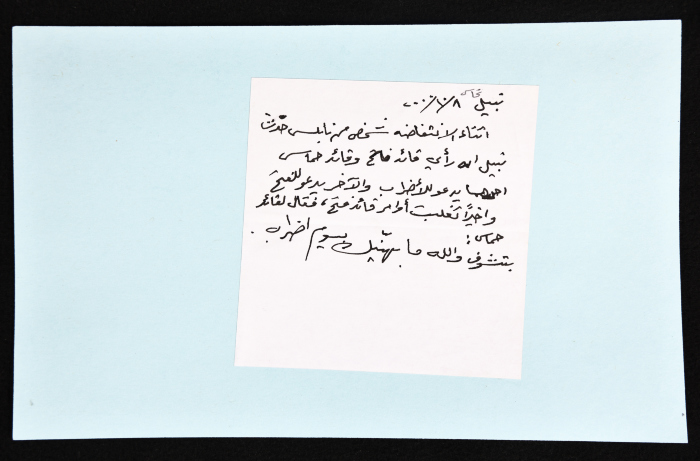 نبيل نحاس ٢٠٠٠/١٠/٨
اثناء الانتفاضه شخص من نابلس حدث
نبيل انه رأي قائد فتح وقائد حماس
احدهما يدعو للأضراب والآخر يدعو للفتح
واخيرًا تغلبت أوامر قائد فتح، فقال لقائد
حماس:
بتشوف والله ما بهنّيك بيوم اضراب.